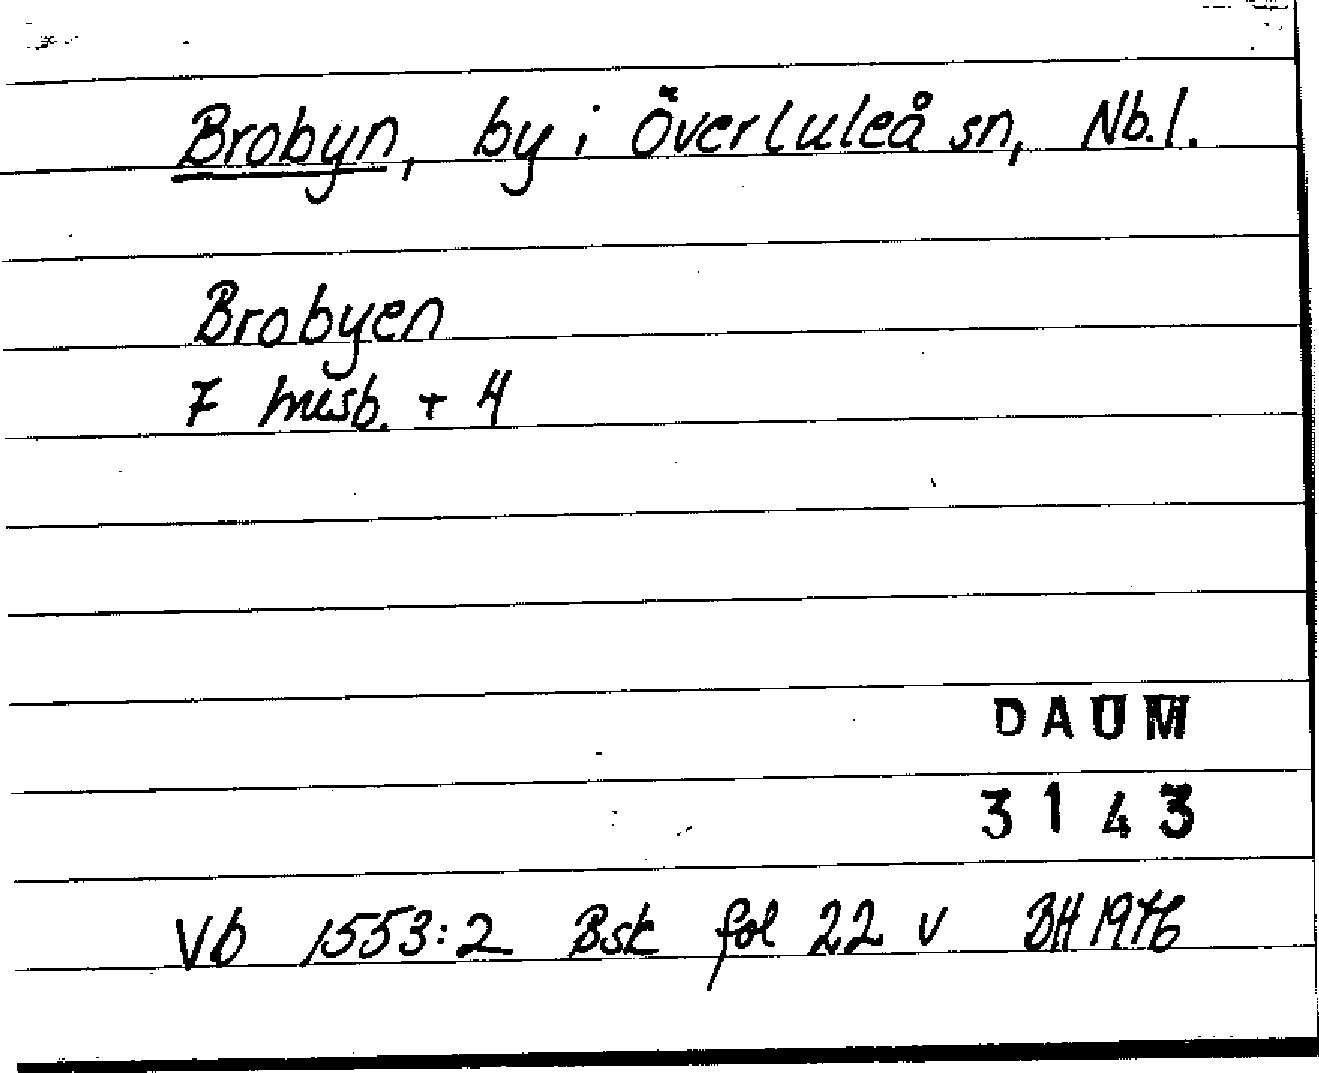 Brobyn, by i Överluleå sn, Nb.l.
Brobyen
7 husb. + 4
DAUM
3143
Vb 1553:2 Bsk fol 22 v BH 1976